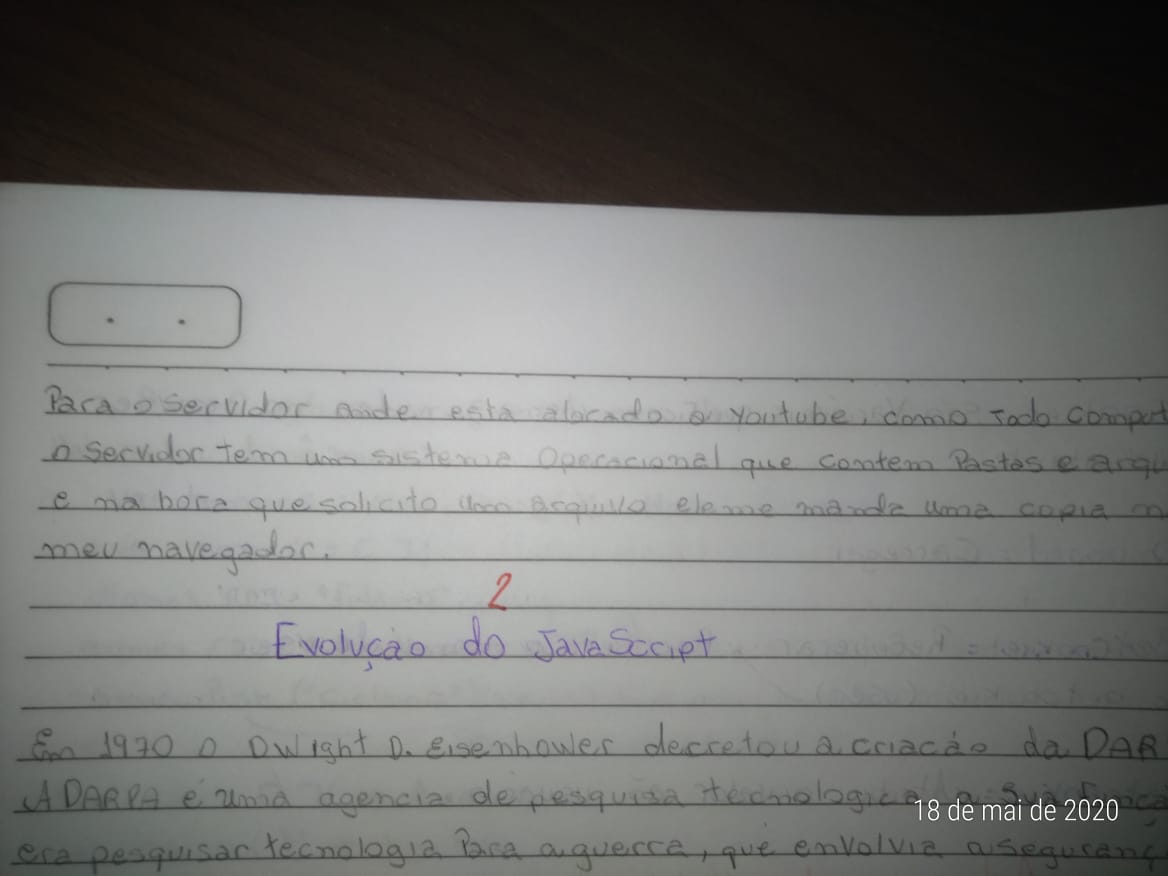 Para o Servidor onde esta alocado o Youtube, como Todo Comput
o Servidor tem um sistema Operacional que contem Pastas e arqu
e na hora que solicito um arquivo ele me manda uma copia n
meu navegador.
2
Evolução do JavaScript
Em 1970 o Dwight D. Eisenhower decretou a criacão da DAR
A DARPA é uma agencia de pesquisa tecnologica a Sua Funcã
era pesquisar tecnologia Para a guerra, que envolvia a seguranç
18 de mai de 2020